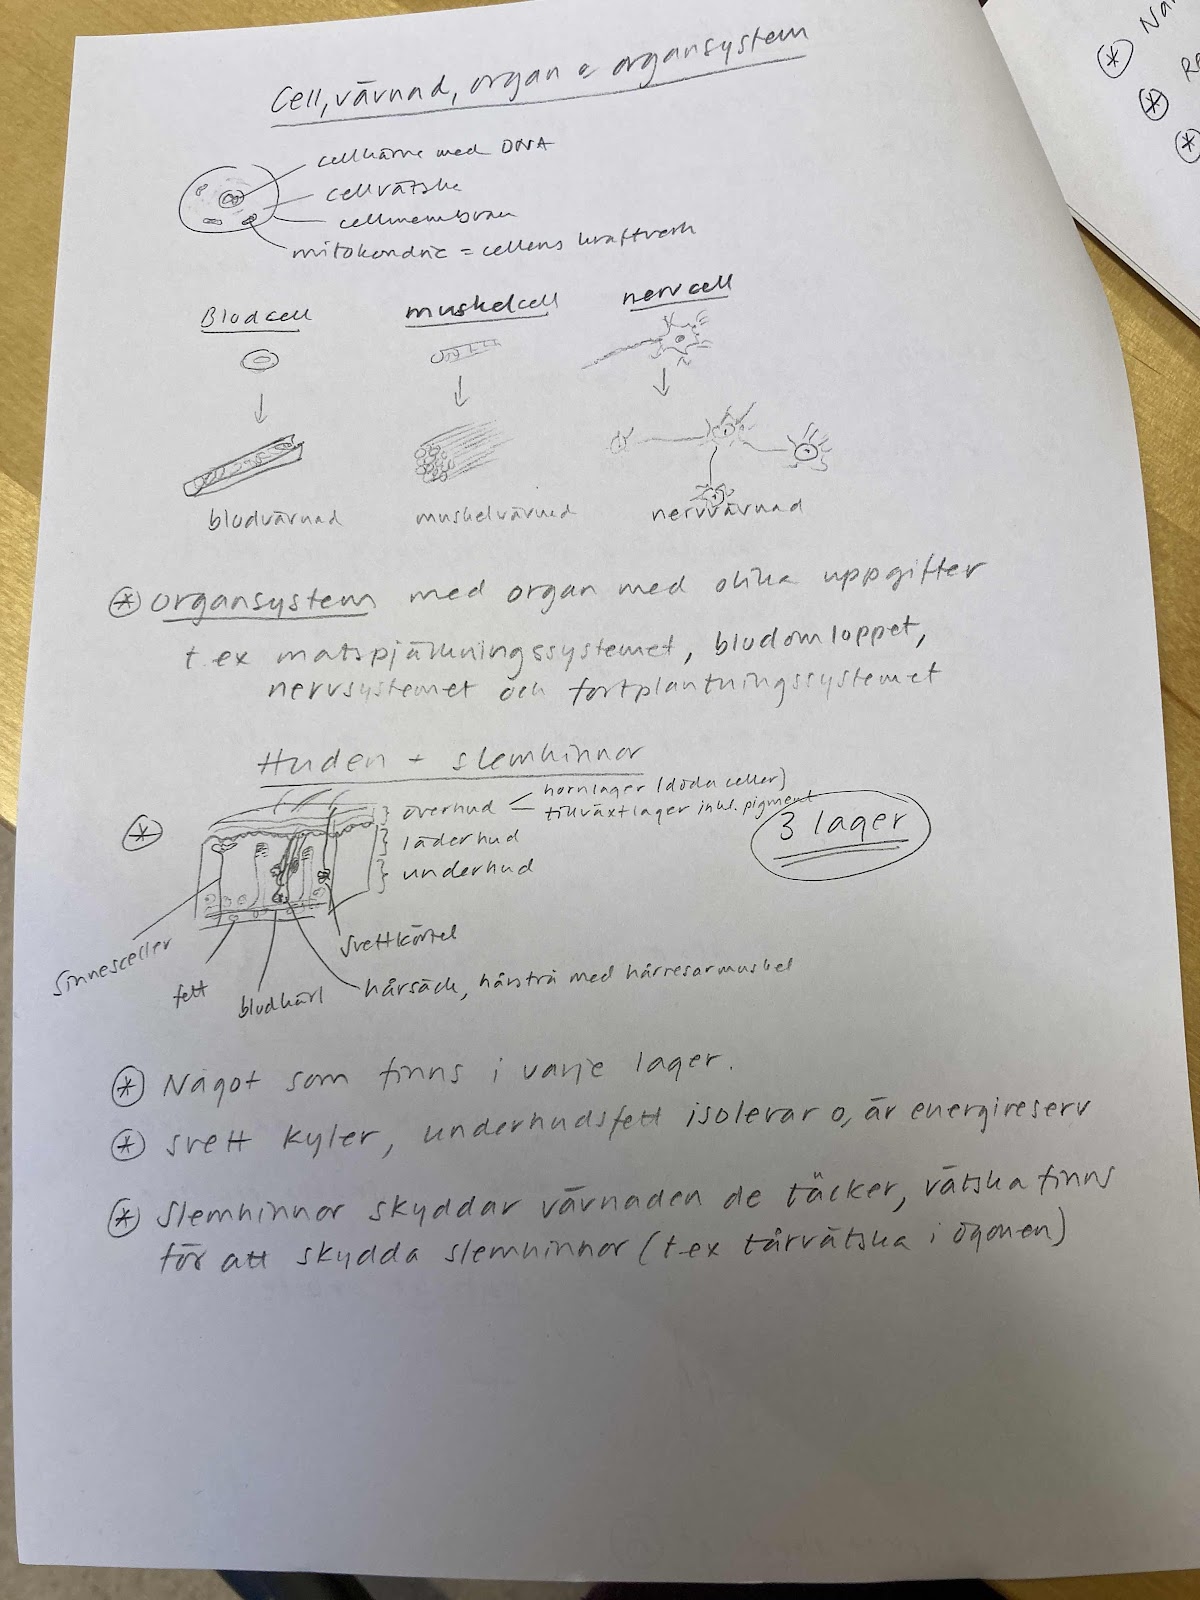 Cell, vävnad, organ o organsystem
cellkärna med DNA
cellvätska
cellmembran
mitokondrie = cellens kraftverk
Blodcell muskelcell nervcell
blodvävnad muskelvävnad nervvävnad
organsystem med organ med olika uppgifter
t.ex matspjälkningssystemet, blodomloppet,
nervsystemet och fortplantningssystemet
Huden + slemhinnor
överhud
hornlager (döda celler)
tillväxtlager inkl. pigment
läderhud
underhud
3 lager
sinnesceller
fett
blodkärl
svettkörtel
hårsäck, hårstrå med hårresarmuskel
Något som finns i varje lager.
svett kyler, underhudsfett isolerar o, är energireserv
Slemhinnor skyddar vävnaden de täcker, vätska finns
för att skydda slemhinnor (t.ex tårvätska i ögonen)